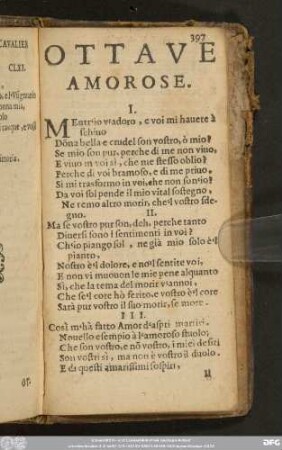 397
OTTAVE
AMOROSE.
I.
MEntr'io v'adoro, e voi mi hauete à
schiuo
Dōna bella e crudel son vostro, ò mio?
Se mio son pur, perche di me non viuo,
E viuo in voi sì, che me stesso oblio?
Perche di voi bramoso, e di me priuo,
Si mi trasformo in voi, che non son'io?
Da voi sol pende il mio vital sostegno,
Ne temo altro morir, che'l vostro sde-
gno.
II.
Ma se vostro pur son, deh, perche tanto
Diuersi sono i sentimenti in voi?
Ch'io piango sol, ne già mio solo è'l
pianto,
Vostro è'l dolore, e no'l sentite voi,
E non vi muouon le mie pene alquanto
Sì, che la tema del morir v'annoi.
Che se'l core hò ferito, e vostro è'l core
Sarà pur vostro il suo morir, se more.
III.
Così m'hà fatto Amor d'aspri martiri,
Nouello esempio à l'amoroso stuolo;
Che son vostro, e nō vostro, i miei desiri
Son vostri sì, ma non è vostro il duolo.
E di questi amarissimi sospiri,
CAVALIER
CLXI.